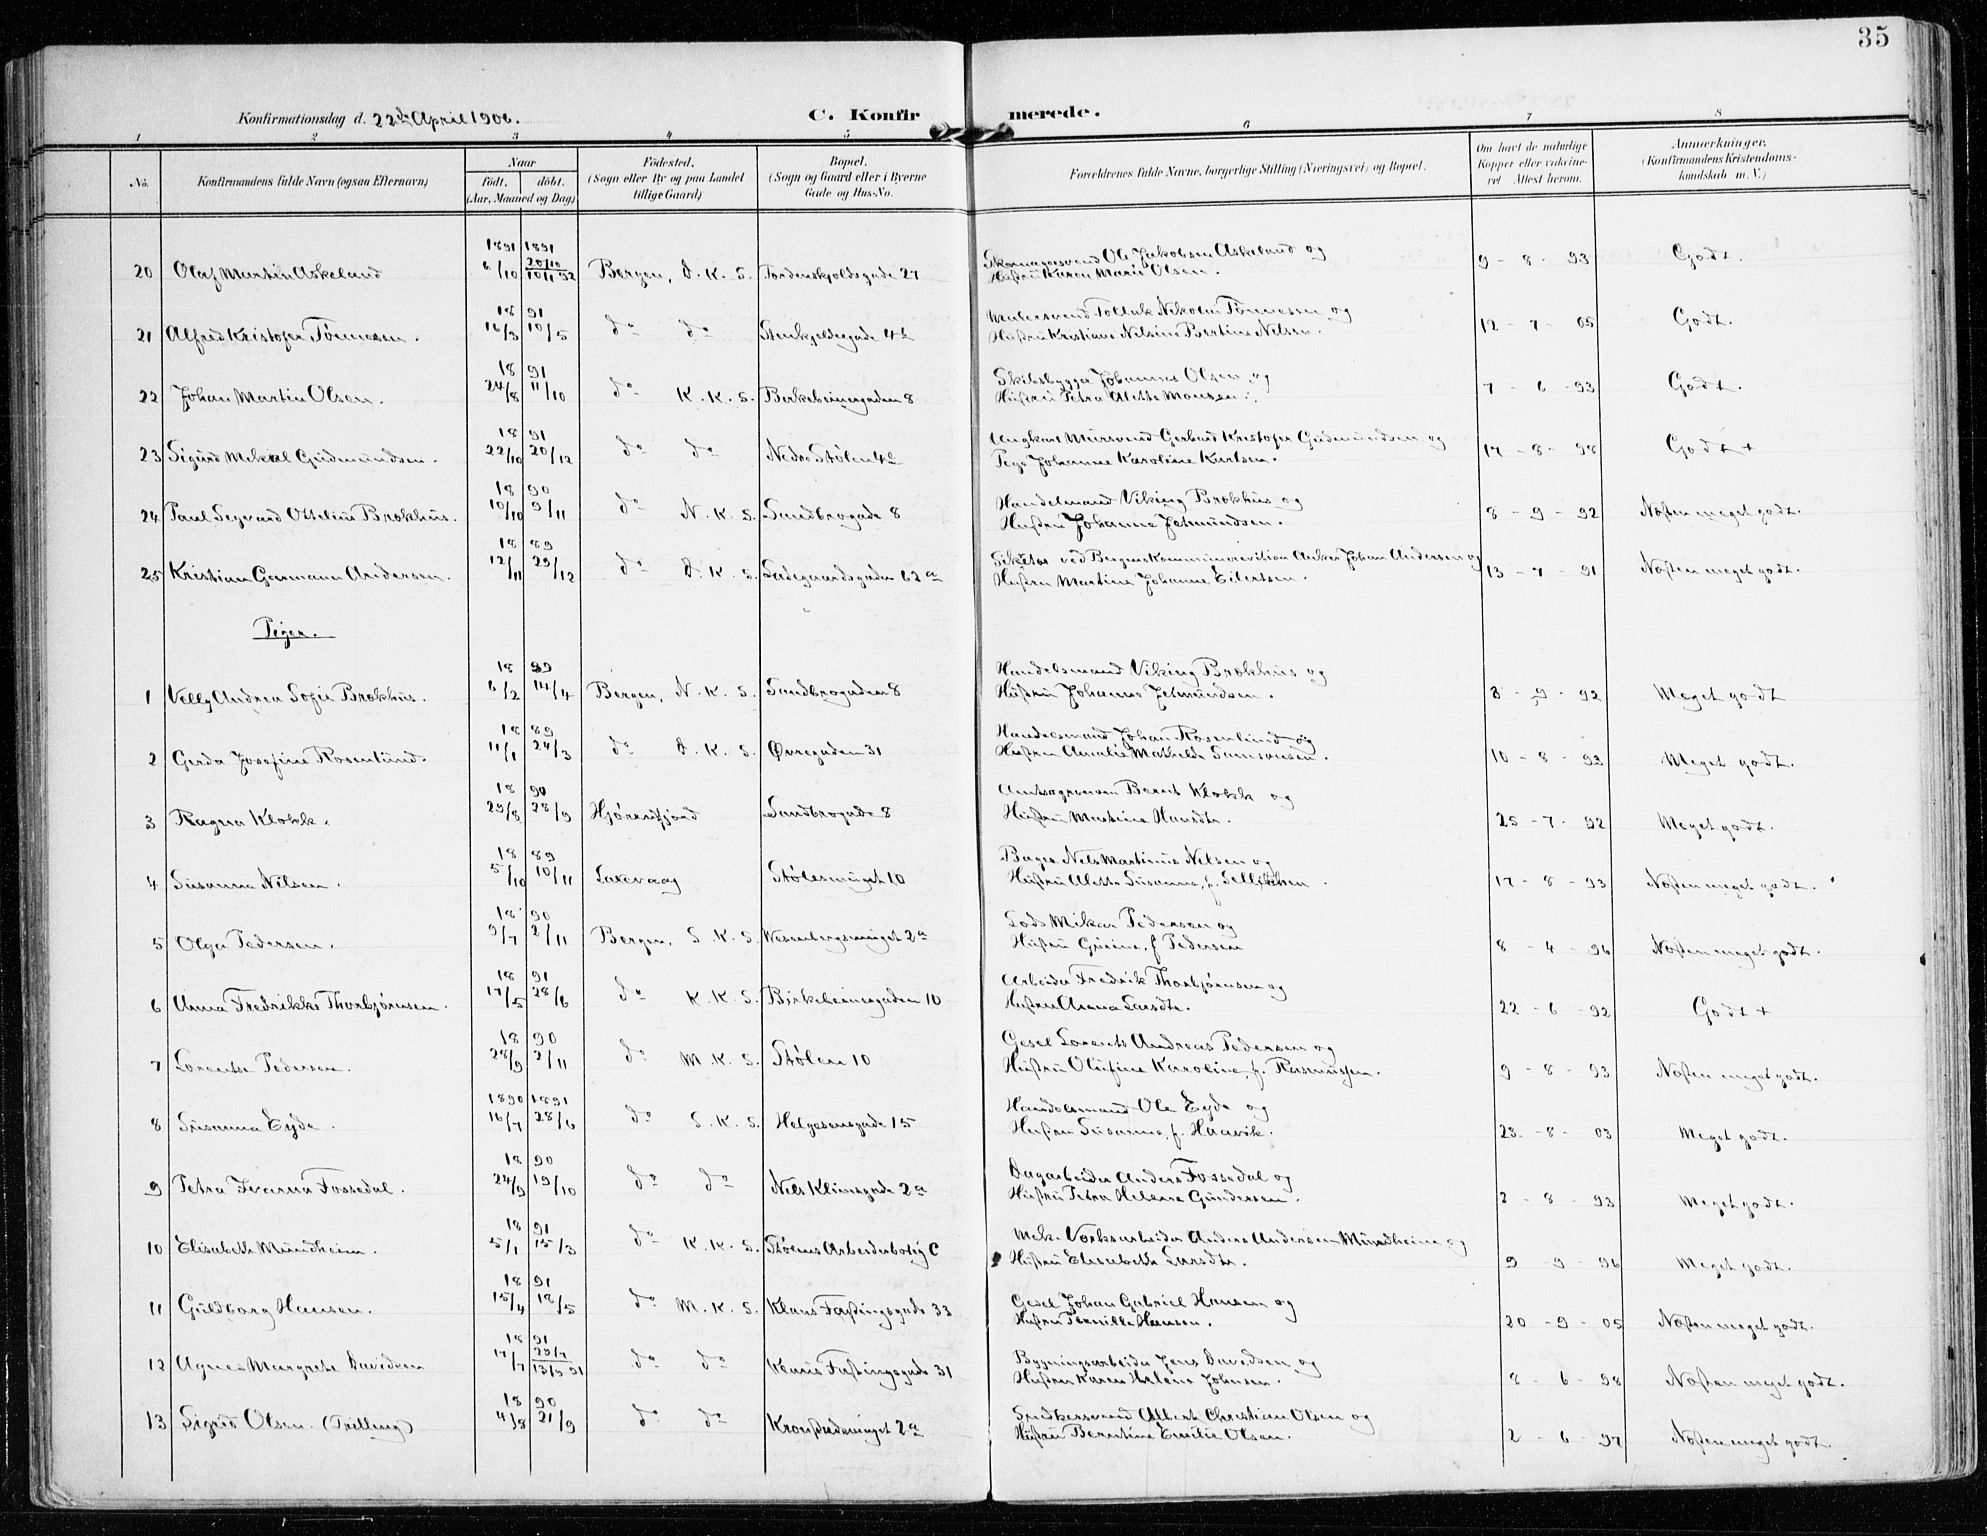 35
Konfirmationsdag d. 22de April 1906.
C. Konfirmerede.
1 2 3 4 5 6 7 8
No. Konfirmandens fulde Navn (ogsaa Efternavn) Naar født. døbt. (Aar, Maaned og Dag) Fødested. (Sogn eller By og paa Landet tillige Gaard) Bopæl. (Sogn og Gaard eller i Byerne Gade og Hus-No. Forældrenes fulde Navne, borgerlige Stilling (Næringsvei) og Bopæl. Om havt de naturlige Kopper eller vaksineret Attest herom. Anmærkninger. (Konfirmandens Kristendomskundskab m. V.)
1891 1891 20/10 Skomagersvend Ole Jakobsen Askeland og
20 Olaf Martin Askeland 6/10 10/1 92 Bergen, D. K. S. Tordenskjoldsgade 27 Hustru Karen Marie Olsen. 9 - 8 - 93 Godt.
18 91 Malersvend Tollak Nikolai Tønnesen og
21 Alfred Kristofer Tønnesen. 16/3 10/5 do do Stenkjeldergade 4b Hustru Kristiane Nilsine Bertine Nilsen. 12 - 7 - 05 Godt.
18 91 Skibsbygger Johannes Olsen og
22 Johan Martin Olsen. 24/8 11/10 do K. K. S. Birkebeinergaden 8 Hustru Petra Alette Monsen. 7 - 6 - 93 Godt.
18 91 Ungkarl Mursvend Gerhard Kristofer Gudmundsen og
23 Sigurd Mikal Gudmundsen. 22/10 20/12 do do Nedre Stølen 4a Pige Johanne Karoline Karlsen. 17 - 8 - 98 Godt +
18 90 Handelsmand Viking Brokhus og
24 Paul Segvard Ottelius Brokhus. 10/10 9/11 do N. K. S. Sandbrogade 8 Hustru Johanne Jetmundsen. 8 - 9 - 92 Næsten meget godt.
18 89 Sekretær ved Bergens Kommunerevision Anker Johan Andersen og
25 Kristian Germann Andersen. 12/11 29/12 do D. K. S. Ladegaardsgaden 62a Hustru Martine Johanne Eilertsen. 13 - 7 - 91 Næsten meget godt.
Piger.
18 89 Handelsmand Viking Brokhus og
1 Velly Andrea Sofie Brokhus. 6/2 14/4 Bergen, N. K. S. Sandbrogaden 8 Hustru Johanne Jetmundsen. 8 - 9 - 92 Meget godt
18 89 Handelsmand Johan Rosenlund og
2 Gerda Josefine Rosenlund. 11/1 24/3 do D. K. S. Øvregaden 31 Hustru Amalie Mathilde Samsonsen. 10 - 8 - 93 Meget godt.
18 90 Amtsagronom Bernt Klokk og
3 Ragna Klokk. 29/8 28/9 Hjørendfjord Sandbrogade 8 Hustru Martine Hansdt. 25 - 7 - 92 Meget godt.
18 89 Bager Nels Martinus Nilsen og
4 Susanna Nilsen. 5/10 10/11 Laxevaag Stølesmuget 10 Hustru Alette Susanna, f. 17 - 8 - 93 Næsten meget godt.
18 90 Lods Mikal Pedersen og
5 Olga Pedersen. 9/7 2/11 Bergen, S. K. S. Wesenbergsmuget 2a Hustru Gurine, f. Pedersen 8 - 4 - 96 Næsten meget godt.
18 91 Arbeider Fredrik Thorbjørnsen og
6 Anna Fredrikke Thorbjørnsen. 17/5 28/6 do K. K. S. Birkebeinergaden 10 Hustru Anna Larsdt. 22 - 6 - 92 Godt +
18 90 Gesel Lorents Andreas Pedersen og
7 Lorentse Pedersen. 28/9 2/11 do M. K. S. Stølen 10 Hustru Olufine Karoline, f. Rasmussen. 9 - 8 - 93 Næsten meget godt.
1890 1891 Handelsmand Ole Eyde og
8 Susanna Eyde. 16/7 28/6 do S. K. S. Helgesensgade 15 Hustru Susanna, f. Haavik. 23. - 8 - 03 Meget godt.
18 90 Dagarbeider Anders Fossedal og
9 Petra Iverna Fossedal. 24/9 19/10 do do Nels Klimsgade 2a Hustru Petra Helene Gundersen. 2 - 8 - 93 Meget godt.
18 91 Mek. Værksarbeider Anders Andersen Mundheim og
10 Elisabeth Mundheim. 5/1 15/3 do K. K. S. Stølens Arbeiderbolig C Hustru Elisabeth Larsdt. 9 - 9 - 96 Meget godt.
18 91 Gesel Johan Gabriel Hansen og
11 Guldborg Hansen. 15/4 18/5 do M. K. S. Klaus Fastingsgade 33 Hustru Pernille Hansen. 20 - 9 - 05 Næsten meget godt.
18 91 29/7 Bygningsarbeider Jens Davidsen og
12 Agnes Margrete Davidsen 17/7 13/9 91 do do Klaus Fastingsgade 31 Hustru Karen Helene Johnsen. 8 - 6 - 98 Næsten meget godt.
18 90 Snedkersvend Albert Christian Olsen og
13 Sigrid Olsen. (Trilling) 4/8 21/9 do do Kronstadsmuget 2a Hustru Berntine Emilie Olsen. 2 - 6 - 97 Næsten meget godt.